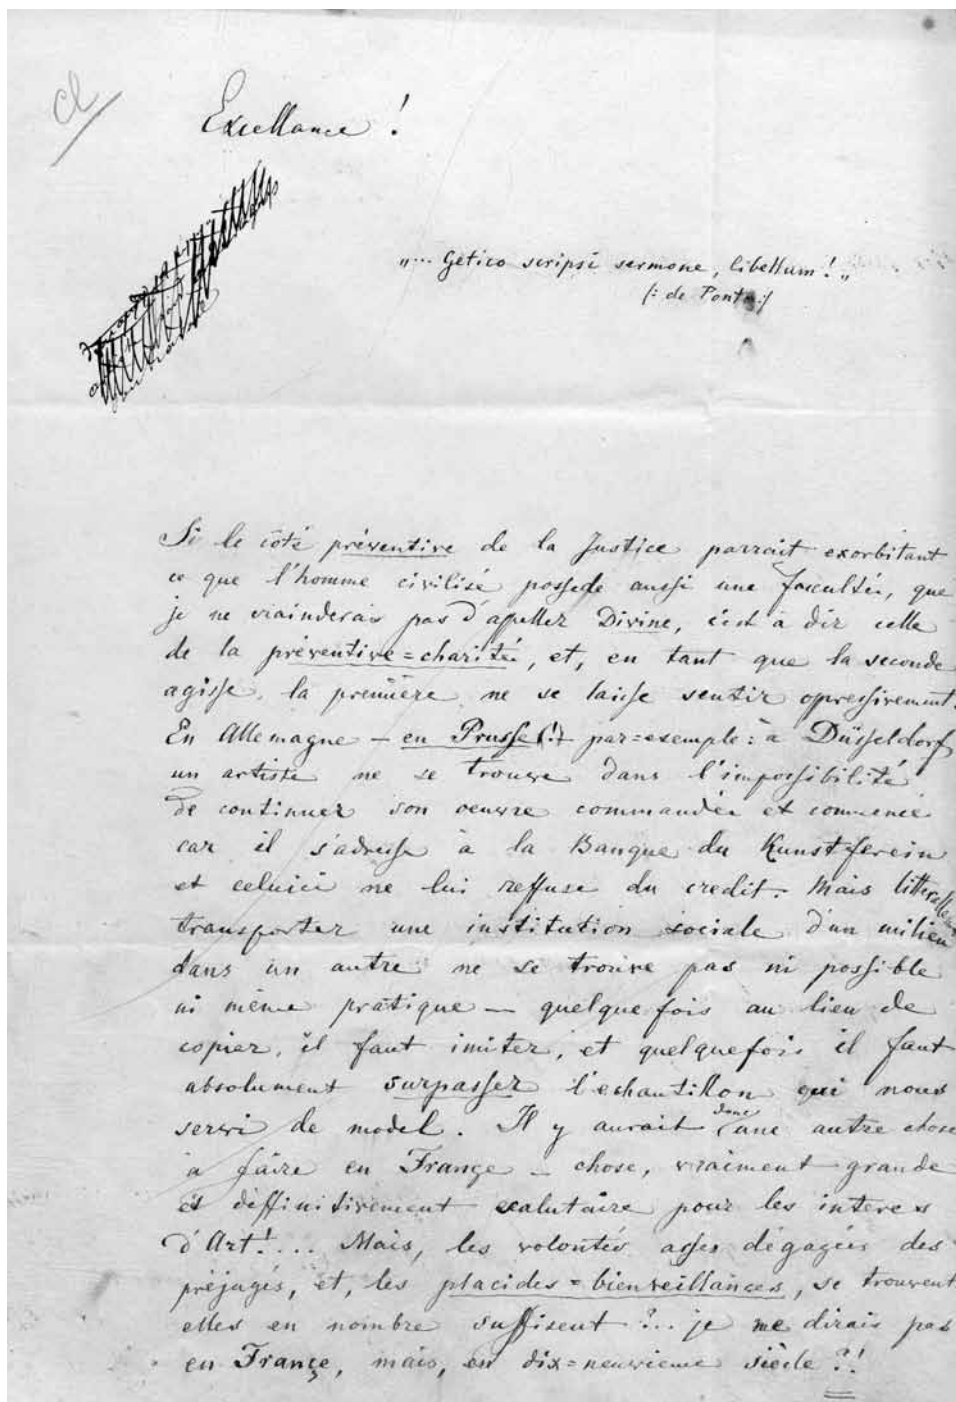 cl
Excellance !
"... Getico scripsi sermone, libellum! "
(: de Ponto :)
Si le côté préventive de la Justice parrait exorbitant
ce que l'homme civilisé possede aussi une facultée, que
je ne crainderais pas d'apeller Divine, c'est à dir celle
de la préventive=charité, et, en tant que la seconde
agisse, la première ne se laisse sentir oppressivement.
En Allemagne — en Prusse (!) par=exemple: à Düsseldorf
un artiste ne se trouve dans l'impossibilité
de continuer son oeuvre commandée et commencé
car il s'adresse à la Banque du Kunstferein
et celuici ne lui reffuse du credit. Mais litterallement
transporter une institution sociale d'un milieu
dans un autre ne se trouve pas ni possible
ni même pratique — quelquefois au lieu de
copier, il faut imiter, et quelquefois il faut
absolument surpasser l'echantillon qui nous
servi de model. Il y aurait donc une autre chose
à faire en France — chose, vraiment grande
et diffinitivement salutaire pour les interes
d'Art!.... Mais, les volontés asses dégagées des
préjugés, et, les placides=bienveillances, se trouvent
elles en nombre suffisent ?... je ne dirais pas
en France, mais, en dix=neuvieme siècle ?!